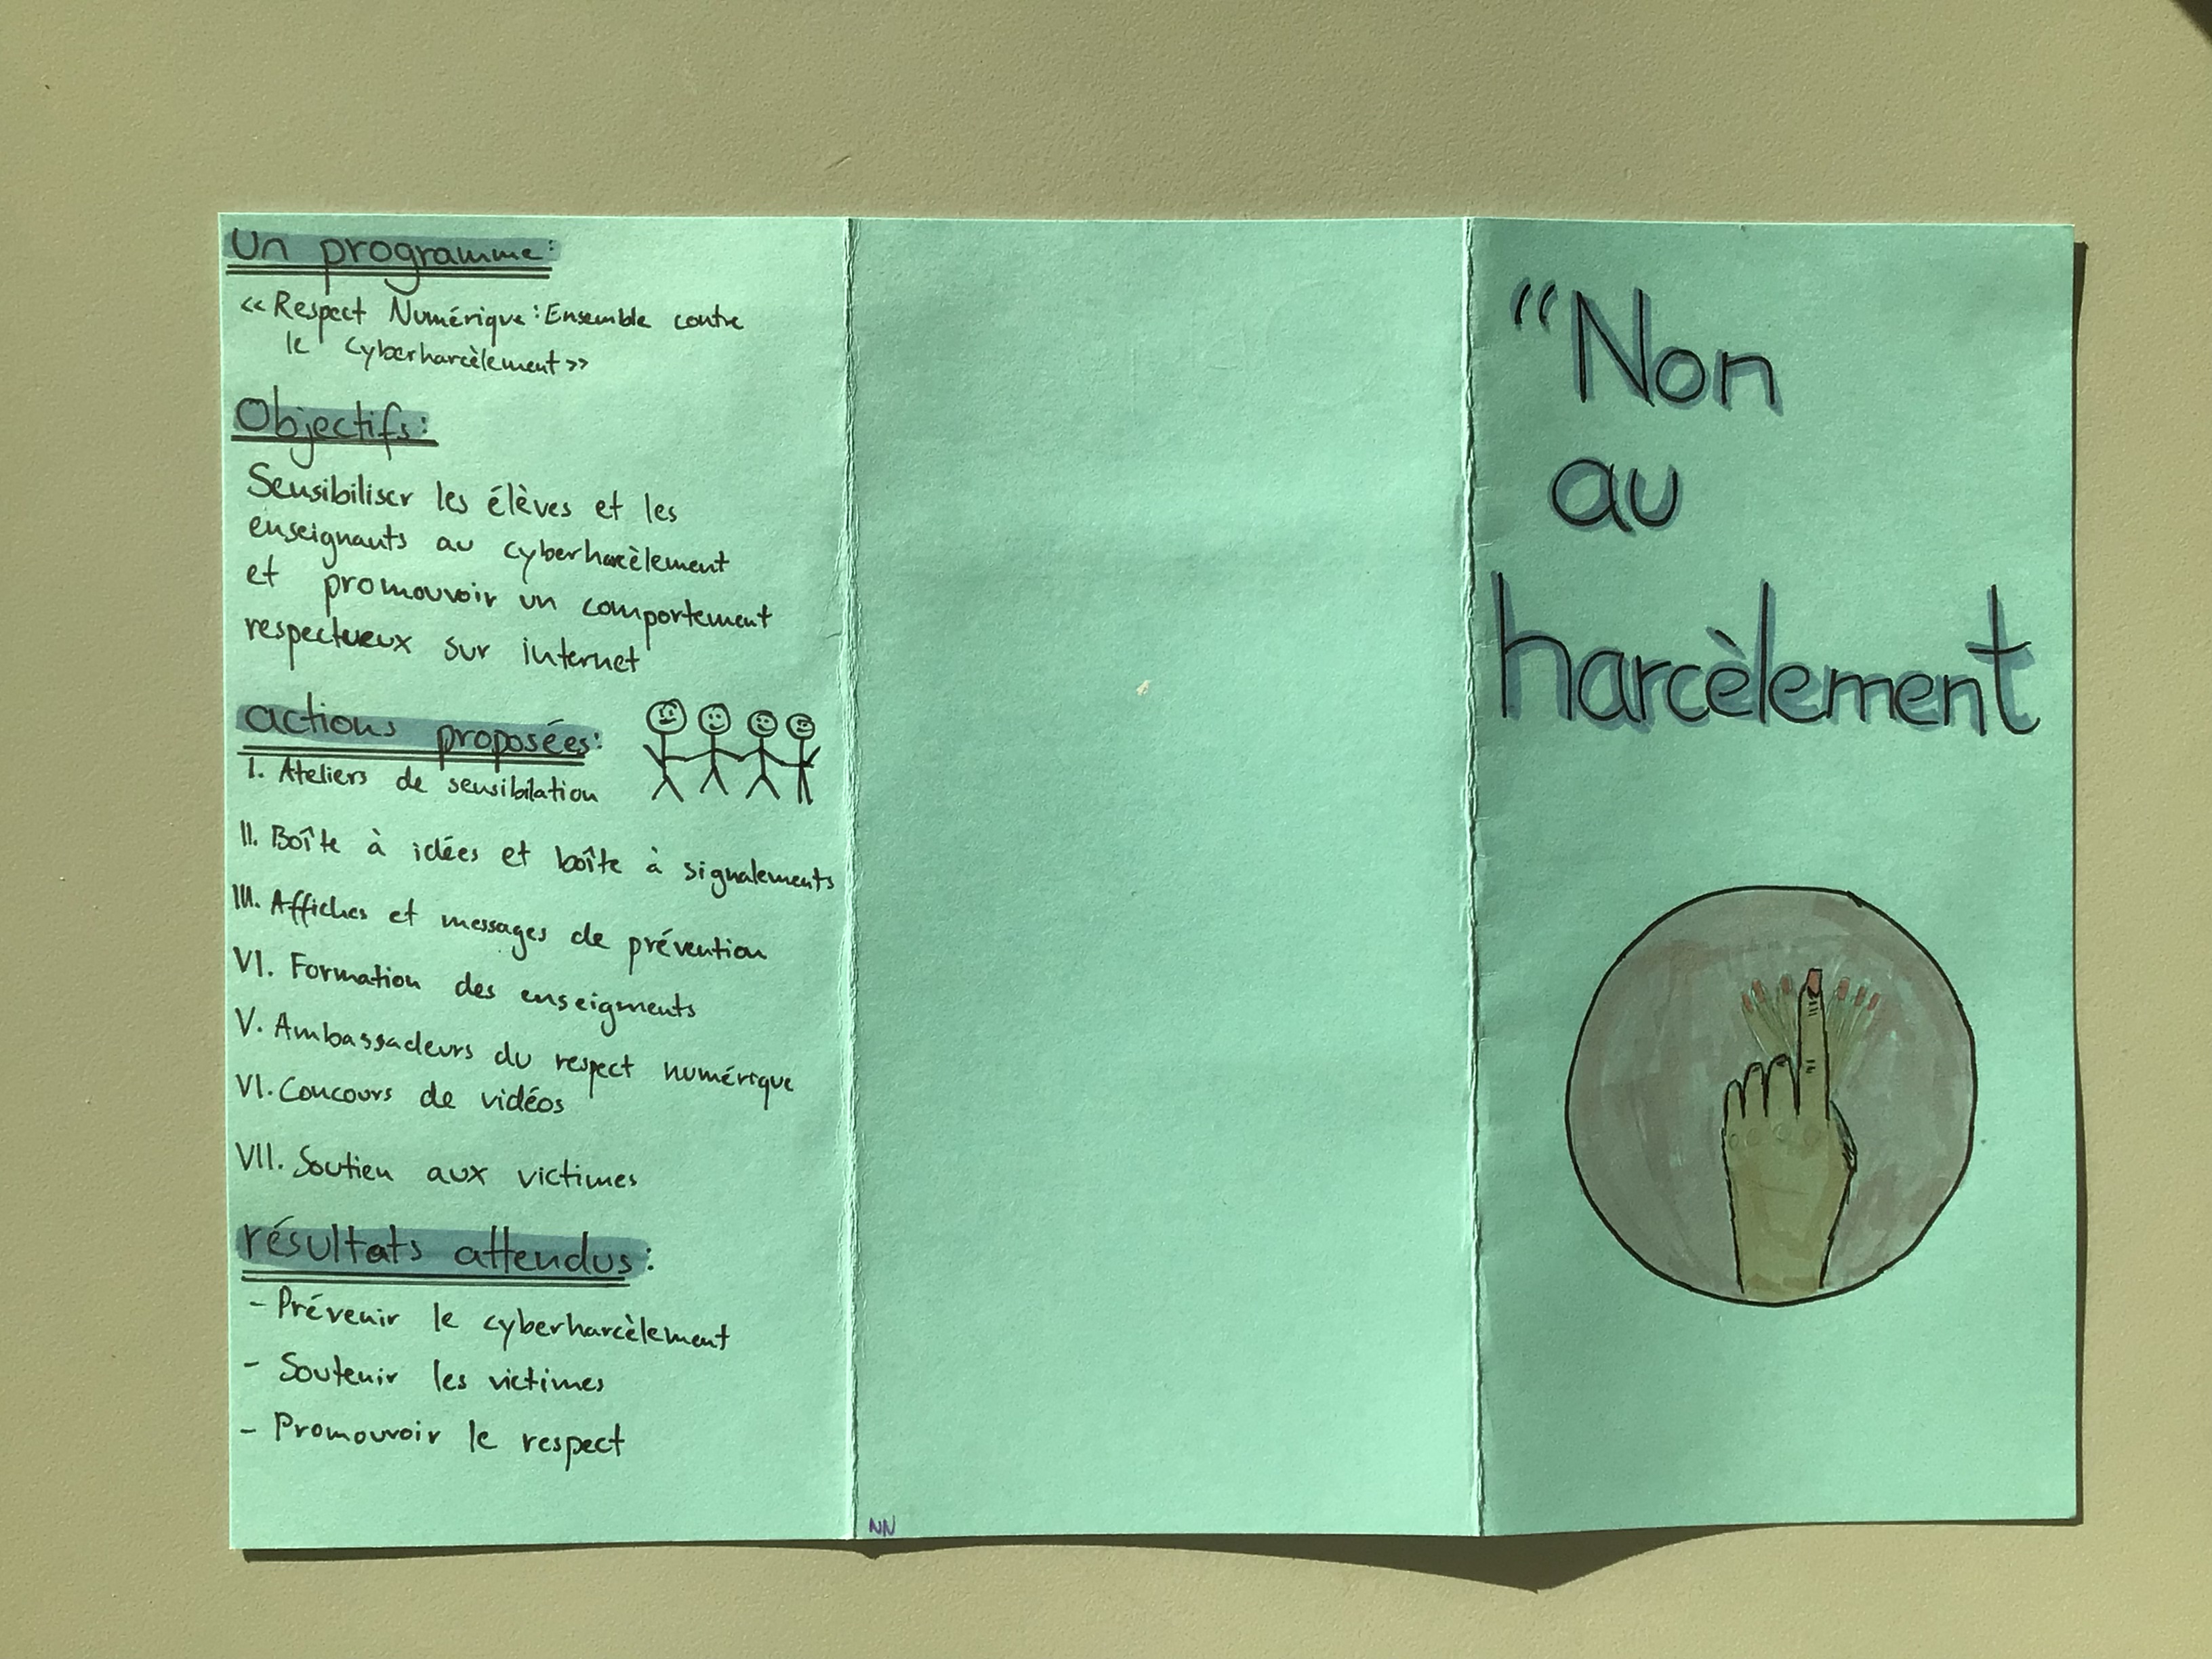 Un programme:
<< Respect Numérique: Ensemble contre
le Cyberharcèlement >>
Objectifs:
Sensibiliser les élèves et les
enseignants au cyberharcèlement
et promouvoir un comportement
respectueux sur internet
actions proposées:
I. Ateliers de sensibilation
II. Boîte à idées et boîte à signalements
III. Affiches et messages de prévention
VI. Formation des enseigments
V. Ambassadeurs du respect numérique
VI. Concours de vidéos
VII. Soutien aux victimes
résultats attendus:
- Prévenir le cyberharcèlement
- Soutenir les victimes
- Promouvoir le respect
NN
“Non
au
harcèlement